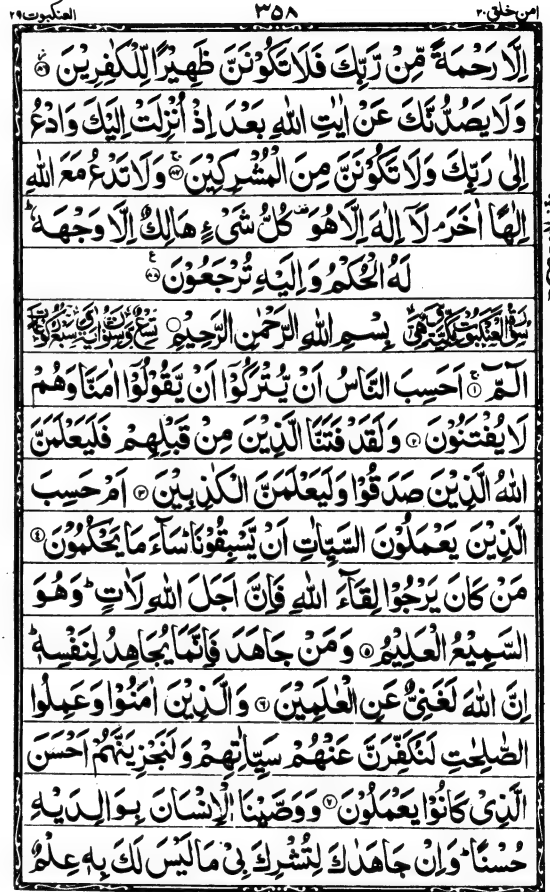 امن خلق ٢٠ ٣٥٨ العنكبوت ٢٩
اِلَّا رَحْمَةً مِّنْ رَّبِّكَ فَلَا تَكُوْنَنَّ ظَهِيْرًا لِّلْكٰفِرِيْنَ ۝٨٦
وَلَا يَصُدُّنَّكَ عَنْ اٰيٰتِ اللّٰهِ بَعْدَ اِذْ اُنْزِلَتْ اِلَيْكَ وَادْعُ
اِلٰى رَبِّكَ وَلَا تَكُوْنَنَّ مِنَ الْمُشْرِكِيْنَ ۝٨٧ وَلَا تَدْعُ مَعَ اللّٰهِ
اِلٰهًا اٰخَرَ ۘ لَآ اِلٰهَ اِلَّا هُوَ ۣ كُلُّ شَيْءٍ هَالِكٌ اِلَّا وَجْهَهٗ ؕ
لَهُ الْحُكْمُ وَاِلَيْهِ تُرْجَعُوْنَ ۝٨٨
بِسْمِ اللّٰهِ الرَّحْمٰنِ الرَّحِيْمِ
الٓمّٓ ۝١ اَحَسِبَ النَّاسُ اَنْ يُّتْرَكُوْٓا اَنْ يَّقُوْلُوْٓا اٰمَنَّا وَهُمْ
لَا يُفْتَنُوْنَ ۝٢ وَلَقَدْ فَتَنَّا الَّذِيْنَ مِنْ قَبْلِهِمْ فَلَيَعْلَمَنَّ
اللّٰهُ الَّذِيْنَ صَدَقُوْا وَلَيَعْلَمَنَّ الْكٰذِبِيْنَ ۝٣ اَمْ حَسِبَ
الَّذِيْنَ يَعْمَلُوْنَ السَّيِّاٰتِ اَنْ يَّسْبِقُوْنَا ؕ سَآءَ مَا يَحْكُمُوْنَ ۝٤
مَنْ كَانَ يَرْجُوْا لِقَآءَ اللّٰهِ فَاِنَّ اَجَلَ اللّٰهِ لَاٰتٍ ؕ وَهُوَ
السَّمِيْعُ الْعَلِيْمُ ۝٥ وَمَنْ جَاهَدَ فَاِنَّمَا يُجَاهِدُ لِنَفْسِهٖ ؕ
اِنَّ اللّٰهَ لَغَنِيٌّ عَنِ الْعٰلَمِيْنَ ۝٦ وَالَّذِيْنَ اٰمَنُوْا وَعَمِلُوا
الصّٰلِحٰتِ لَنُكَفِّرَنَّ عَنْهُمْ سَيِّاٰتِهِمْ وَلَنَجْزِيَنَّهُمْ اَحْسَنَ
الَّذِيْ كَانُوْا يَعْمَلُوْنَ ۝٧ وَوَصَّيْنَا الْاِنْسَانَ بِوَالِدَيْهِ
حُسْنًا ؕ وَاِنْ جَاهَدٰكَ لِتُشْرِكَ بِيْ مَا لَيْسَ لَكَ بِهٖ عِلْمٌ